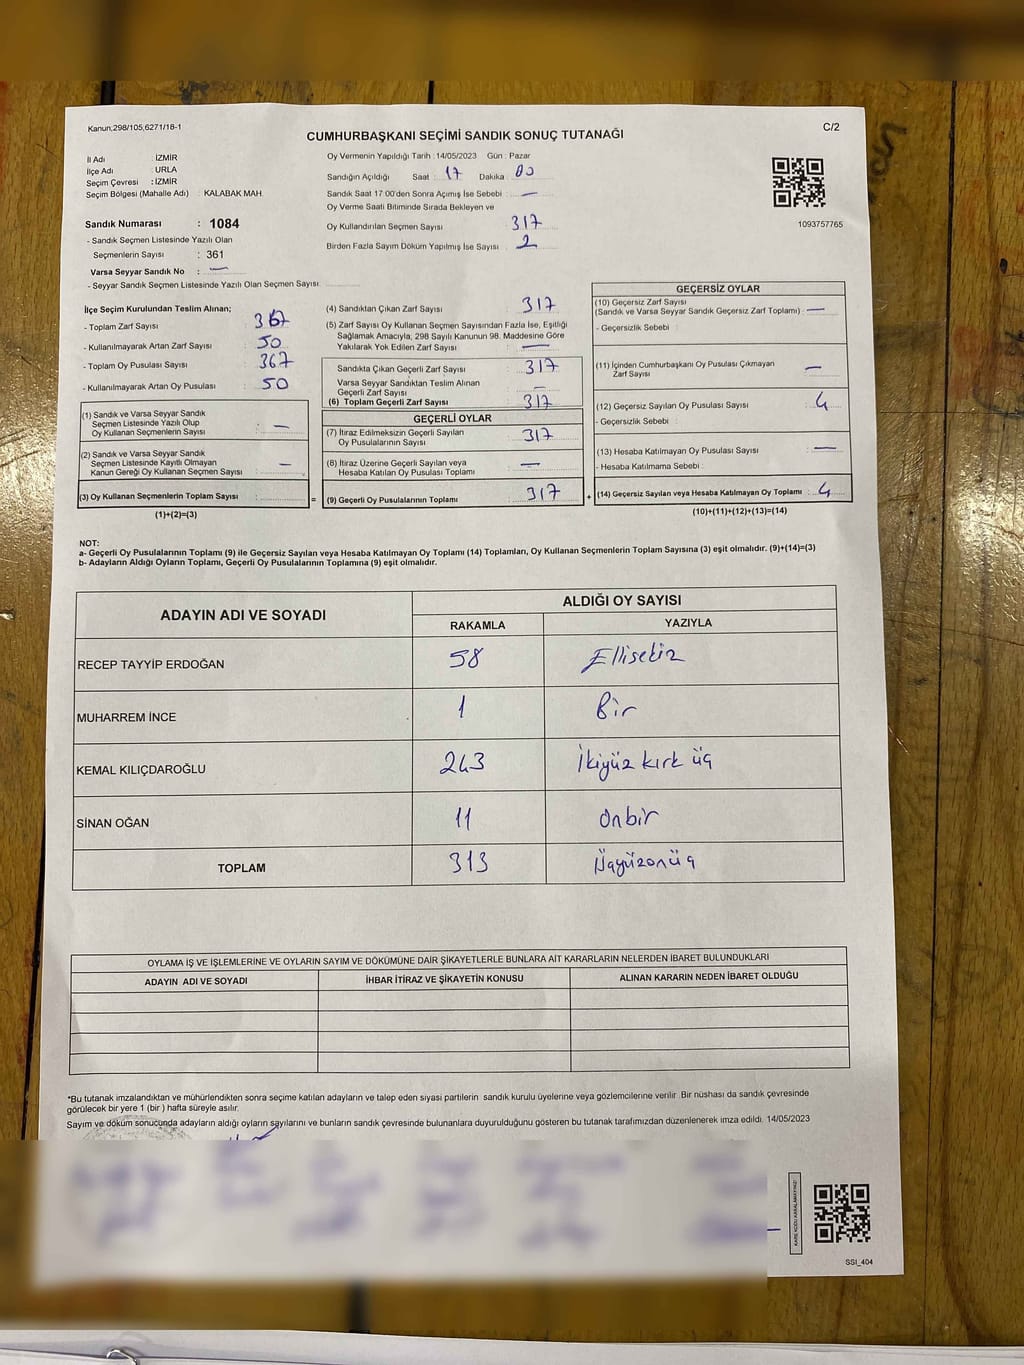 Kanun;298/105;6271/18-1
CUMHURBAŞKANI SEÇİMİ SANDIK SONUÇ TUTANAĞI
C/2
İl Adı : İZMİR
İlçe Adı : URLA
Seçim Çevresi : İZMİR
Seçim Bölgesi (Mahalle Adı) : KALABAK MAH.
Oy Vermenin Yapıldığı Tarih : 14/05/2023 Gün : Pazar
Sandığın Açıldığı Saat : 17 Dakika : 00
Sandık Saat 17:00'den Sonra Açımış İse Sebebi : —
Oy Verme Saati Bitiminde Sırada Bekleyen ve
Oy Kullandırılan Seçmen Sayısı : 317
Birden Fazla Sayım Döküm Yapılmış İse Sayısı : 2
1093757765
Sandık Numarası : 1084
- Sandık Seçmen Listesinde Yazılı Olan
Seçmenlerin Sayısı : 361
Varsa Seyyar Sandık No : —
- Seyyar Sandık Seçmen Listesinde Yazılı Olan Seçmen Sayısı:
İlçe Seçim Kurulundan Teslim Alınan;
- Toplam Zarf Sayısı : 367
- Kullanılmayarak Artan Zarf Sayısı : 50
- Toplam Oy Pusulası Sayısı : 367
- Kullanılmayarak Artan Oy Pusulası : 50
(1) Sandık ve Varsa Seyyar Sandık
Seçmen Listesinde Yazılı Olup
Oy Kullanan Seçmenlerin Sayısı : —
(2) Sandık ve Varsa Seyyar Sandık
Seçmen Listesinde Kayıtlı Olmayan
Kanun Gereği Oy Kullanan Seçmen Sayısı : —
(3) Oy Kullanan Seçmenlerin Toplam Sayısı : =
(1)+(2)=(3)
(4) Sandıktan Çıkan Zarf Sayısı : 317
(5) Zarf Sayısı Oy Kullanan Seçmen Sayısından Fazla İse, Eşitliği
Sağlamak Amacıyla, 298 Sayılı Kanunun 98. Maddesine Göre
Yakılarak Yok Edilen Zarf Sayısı : —
Sandıkta Çıkan Geçerli Zarf Sayısı : 317
Varsa Seyyar Sandıktan Teslim Alınan
Geçerli Zarf Sayısı : —
(6) Toplam Geçerli Zarf Sayısı : 317
GEÇERLİ OYLAR
(7) İtiraz Edilmeksizin Geçerli Sayılan
Oy Pusulalarının Sayısı : 317
(8) İtiraz Üzerine Geçerli Sayılan veya
Hesaba Katılan Oy Pusulası Toplamı : —
(9) Geçerli Oy Pusulalarının Toplamı : 317 +
GEÇERSİZ OYLAR
(10) Geçersiz Zarf Sayısı
(Sandık ve Varsa Seyyar Sandık Geçersiz Zarf Toplamı) : —
- Geçersizlik Sebebi :
(11) İçinden Cumhurbaşkanı Oy Pusulası Çıkmayan
Zarf Sayısı : —
(12) Geçersiz Sayılan Oy Pusulası Sayısı : 4
- Geçersizlik Sebebi :
(13) Hesaba Katılmayan Oy Pusulası Sayısı : —
- Hesaba Katılmama Sebebi :
(14) Geçersiz Sayılan veya Hesaba Katılmayan Oy Toplamı : 4
(10)+(11)+(12)+(13)=(14)
NOT:
a- Geçerli Oy Pusulalarının Toplamı (9) ile Geçersiz Sayılan veya Hesaba Katılmayan Oy Toplamı (14) Toplamları, Oy Kullanan Seçmenlerin Toplam Sayısına (3) eşit olmalıdır. (9)+(14)=(3)
b- Adayların Aldığı Oyların Toplamı, Geçerli Oy Pusulalarının Toplamına (9) eşit olmalıdır.
ADAYIN ADI VE SOYADI ALDIĞI OY SAYISI
RAKAMLA YAZIYLA
RECEP TAYYİP ERDOĞAN 58 Ellisekiz
MUHARREM İNCE 1 Bir
KEMAL KILIÇDAROĞLU 243 İkiyüz kırk üç
SİNAN OĞAN 11 Onbir
TOPLAM 313 Üçyüzonüç
OYLAMA İŞ VE İŞLEMLERİNE VE OYLARIN SAYIM VE DÖKÜMÜNE DAİR ŞİKAYETLERLE BUNLARA AİT KARARLARIN NELERDEN İBARET BULUNDUKLARI
ADAYIN ADI VE SOYADI İHBAR İTİRAZ VE ŞİKAYETİN KONUSU ALINAN KARARIN NEDEN İBARET OLDUĞU
*Bu tutanak imzalandıktan ve mühürlendikten sonra seçime katılan adayların ve talep eden siyasi partilerin sandık kurulu üyelerine veya gözlemcilerine verilir. Bir nüshası da sandık çevresinde
görülecek bir yere 1 (bir ) hafta süreyle asılır.
Sayım ve döküm sonucunda adayların aldığı oyların sayılarını ve bunların sandık çevresinde bulunanlara duyurulduğunu gösteren bu tutanak tarafımızdan düzenlenerek imza edildi. 14/05/2023
SSI_404